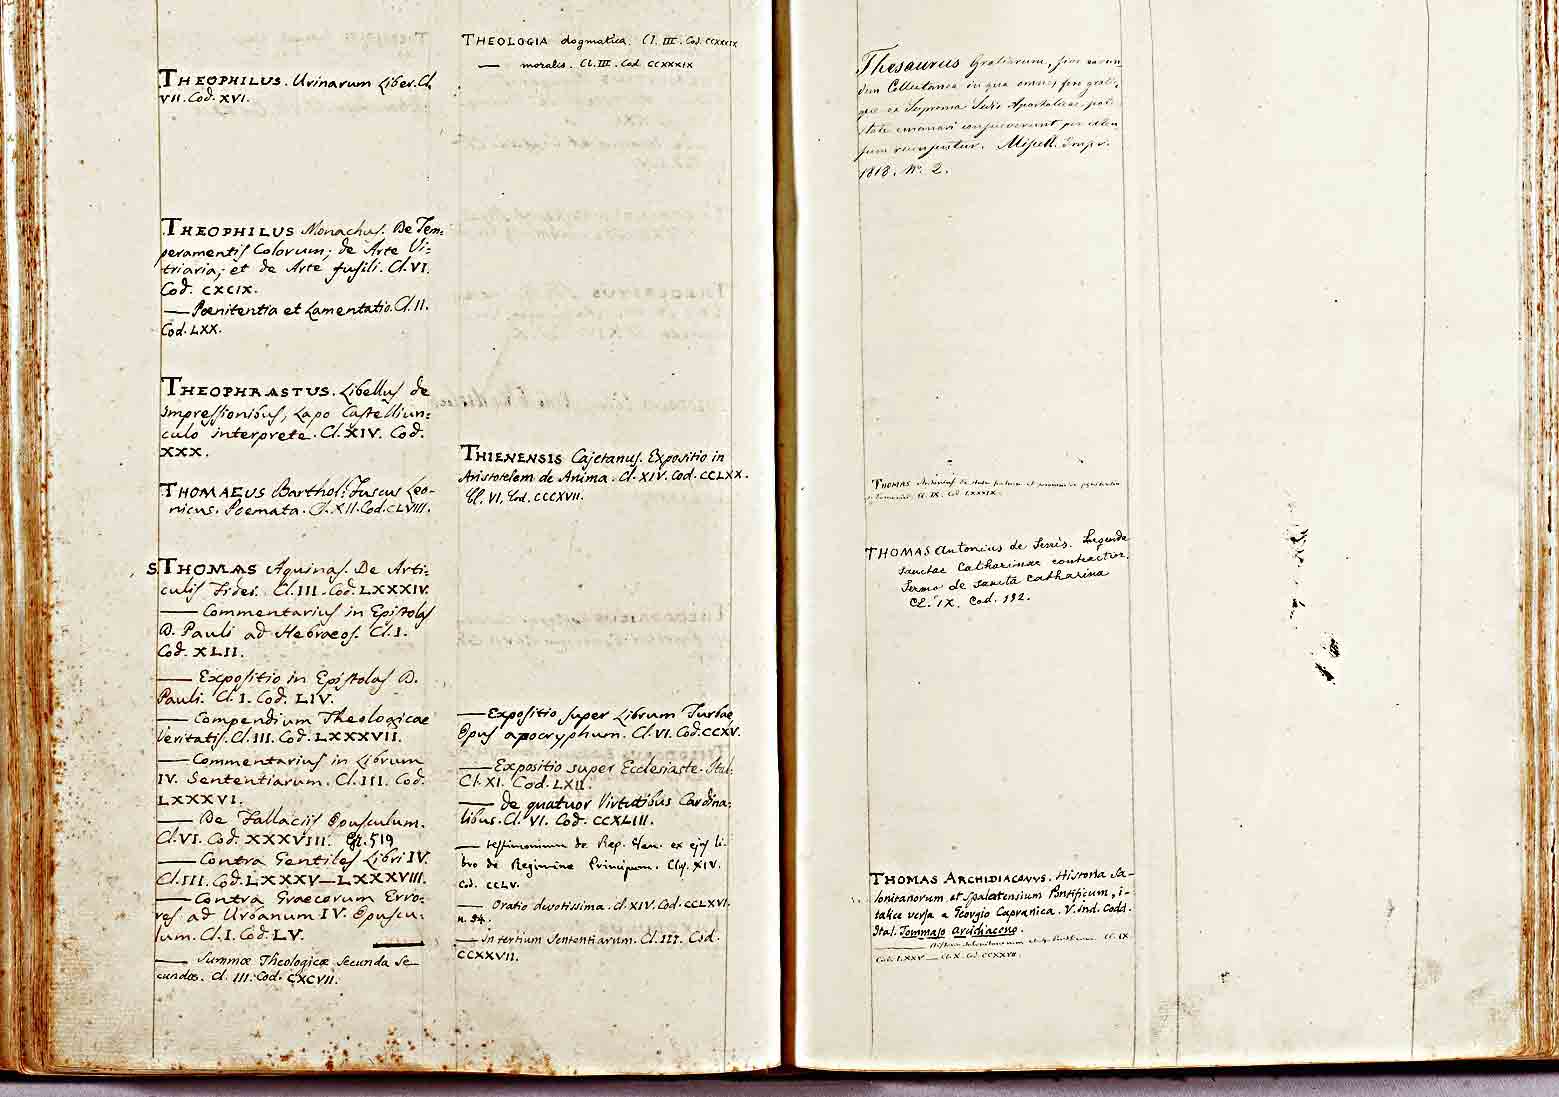 THEOPHILUS. Urinarum Liber. Cl.
VII. Cod. XVI.
THEOPHILUS Monachus. De Tem=
peramentis Colorum; de Arte Vi=
triaria; et de Arte fusili. Cl. VI.
Cod. CXCIX.
— Pœnitentia et Lamentatio. Cl. II.
Cod. LXX.
THEOPHRASTUS. Libellus de
impressionibus, Lapo Castelliun=
culo interprete. Cl. XIV. Cod.
XXX.
THOMAEUS Barthol: Tuscus Leo-
nicus. Poemata. Cl. XII. Cod. CLVIII.
S THOMAS Aquinas. De Arti=
culis Fidei. Cl. III. Cod. LXXXIV.
— Commentarius in Epistolas
D. Pauli ad Hebraeos. Cl. I.
Cod. XLII.
— Expositio in Epistolas D.
Pauli. Cl. I. Cod. LIV.
— Compendium Theologicae
Veritatis. Cl. III. Cod. LXXXVII.
— Commentarius in Librum
IV. Sententiarum. Cl. III. Cod.
LXXXVI.
— De Fallaciis Opusculum.
Cl. VI. Cod. XXXVIII. 519
— Contra Gentiles Libri IV.
Cl. III. Cod. LXXXV—LXXXVIII.
— Contra Graecorum Erro=
res ad Urbanum IV. Opuscu=
lum. Cl. I. Cod. LV.
— Summæ Theologicæ Secunda Se
cundæ. Cl. III. Cod. CXCVII.
THEOLOGIA dogmatica. Cl. III. Cod. CCXXXIX
— moralis. Cl. III. Cod. CCXXXIX
THIENENSIS Cajetanus. Expositio in
Aristotelem de Anima. Cl. XIV. Cod. CCLXX.
Cl. VI. Cod. CCCXVII.
— Expositio super Librum Turbae,
Opus apocryphum. Cl. VI. Cod. CCXV.
— Expositio super Ecclesiaste. Ital:
Cl. XI. Cod. LXII.
— de quatuor Virtutibus Cardina=
libus. Cl. VI. Cod. CCXLIII.
— testimonium de Rep. Ven. ex ejus li=
bro de Regimine Principum. Clas. XIV.
Cod. CCLV.
— Oratio devotissima. Cl. XIV. Cod. CCLXVI.
n. 94.
— In tertium Sententiarum. Cl. III. Cod.
CCXXVII.
Thesaurus Gratiarum, sive
Collectanea in qua omnes fere grati
que ex Suprema Sedis Apostolicae pot
state emanari consueverunt per
recensentur. Miscell. Impr.
1818. N. 2.
THOMAS
Cl. IX. Cod. LXXXIX.
THOMAS Antonius de Senis. Legenda
Sanctae Catharinae contractior.
Sermo de sancta Catharina
Cl. IX. Cod. 192.
THOMAS ARCHIDIACONUS. Historia Sa-
lonitanorum et Spalatensium Pontificum, i-
talice versa a Georgio Capranica. V. Ind. Codd.
Ital. Tommaso Arcidiacono.
— Cl. IX
Cod. LXXV — Cl. X. Cod. CCXXVII.